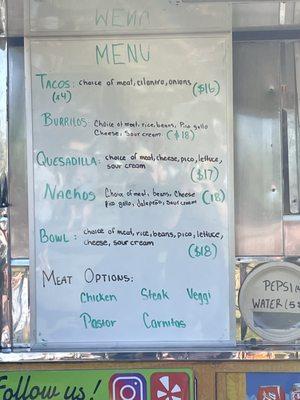 MENU
MENU
TACOS: choice of meat, cilantro, onions
(x4) ($16)
BURRITOS: Choice of meat, rice, beans, Pico gallo
Cheese, Sour cream ($18)
QUESADILLA: choice of meat, cheese, pico, lettuce,
sour cream
($17)
NACHOS Choice of meat, beans, Cheese (18)
Pico gallo, Jalapeño, Sour cream
BOWL: choice of meat, rice, beans, pico, lettuce,
cheese, sour cream
($18)
MEAT OPTIONS:
Chicken Steak Veggi
Pastor Carnitas
PEPSI
WATER
Follow us!